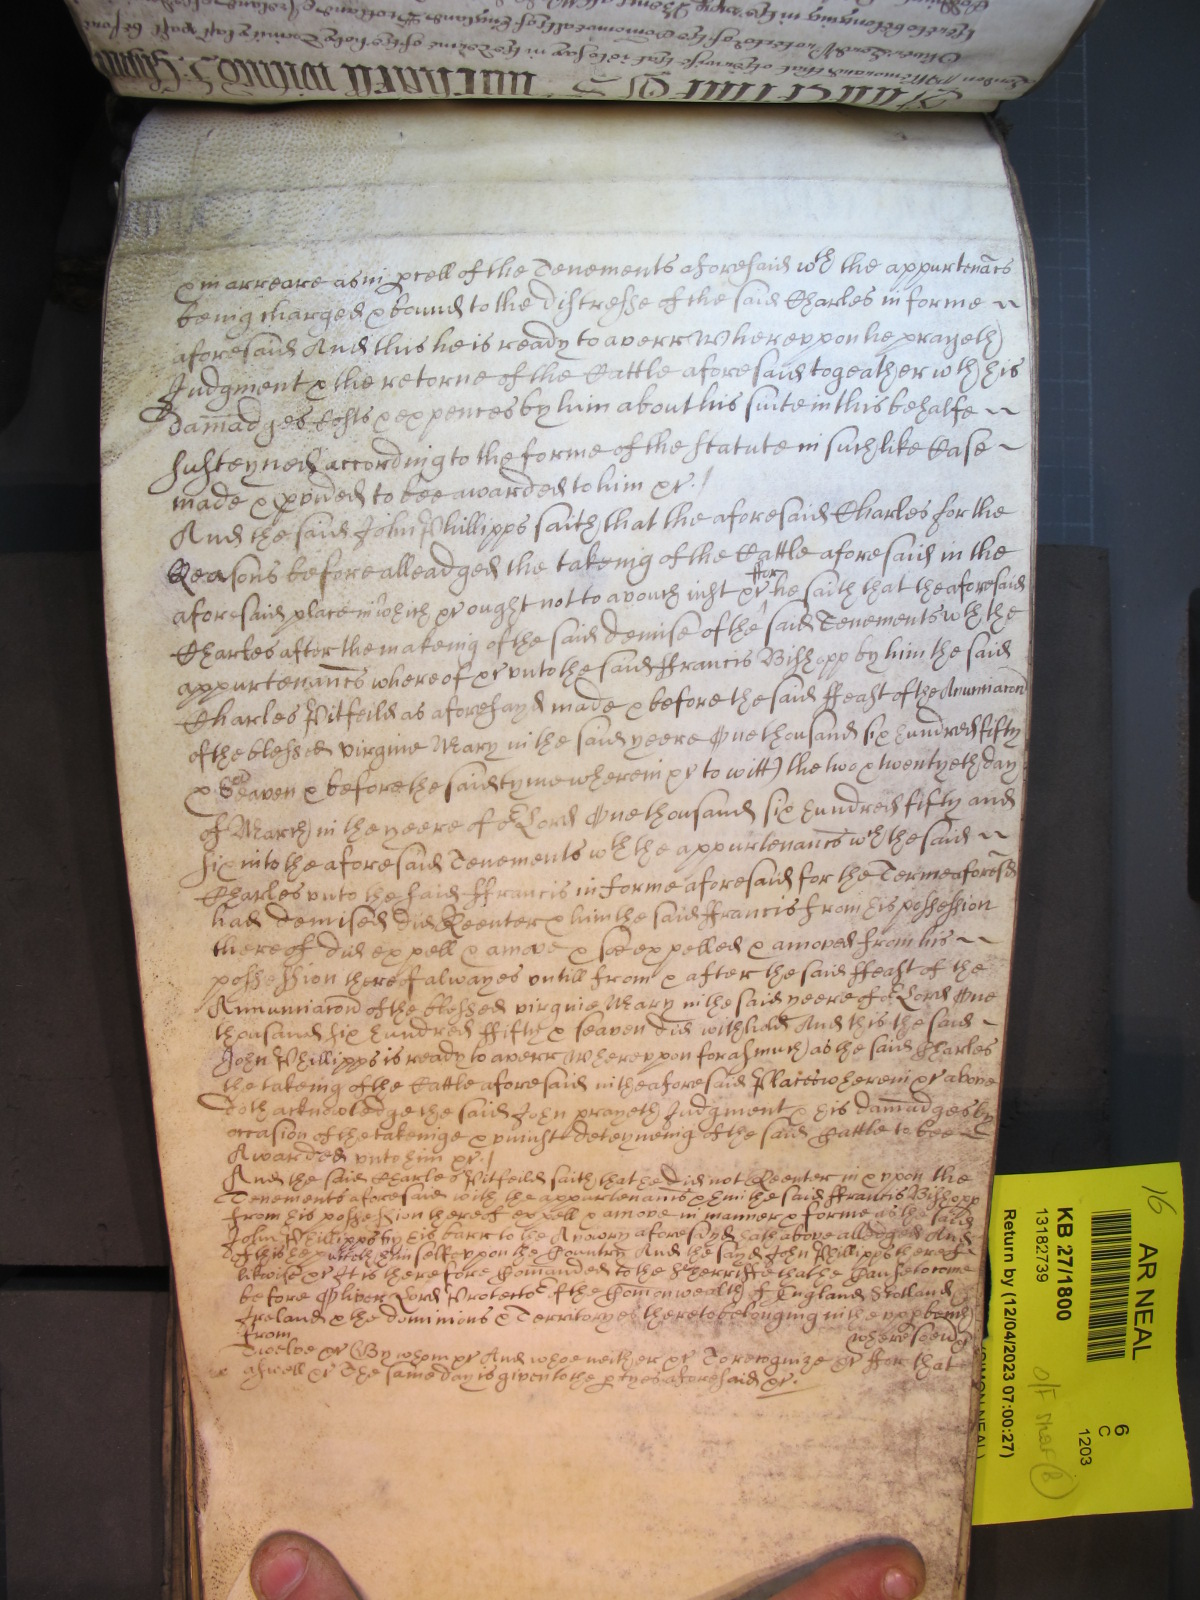 & in arreare as in p̱cell of the Tenements aforesaid wth the appurtenācs
being charged & bound to the distresse of the said Charles in forme ~
aforesaid And this he is ready to averr Whereuppon he prayeth
Judgment & the retorne of the Cattle aforesaid togeather wth his
Dam̄adges Costs & expences by him about his suite in this behalfe ~
susteyned according to the forme of the Statute in such like Case ~
made & p̱vided to bee awarded to him &c.
And the said John Phillipps saith that the aforesaid Charles for the
Reasons before alleadged the takeing of the Cattle aforesaid in the
aforesaid place in which &c ought not to avouch iust &c ffor he saith that the aforesaid
Charles after the makeing of the said demise of the said Tenements wth the
appurtenan̄cs whereof &c vnto the said ffrancis Bishopp by him the said
Charles Pitfeild as aforesayd made & before the said ffeast of the Anunciac̄on
of the blessed virgine Mary in the said yeere One thousand six hundred fifty
& Seaven & before the said tyme wherein &c to witt) the two & twentyeth day
of March in the yeere of or Lord One thousand six hundred fifty and
six into the aforesaid Tenements wth the appurtenan̄cs wch the said ~
Charles vnto the said ffrancis in forme aforesaid for the Terme aforesd
had demised did Reenter & him the said ffrancis from his possession
thereof did expell & amove & soe expelled & amoved from his ~
possession thereof alwayes vntill from & after the said ffeast of the
Annunciac̄on of the blessed virgine Mary in the said yeere of or Lord One
thousand six hundred ffifty & seaven did withhold And this the said ~
John Phillipps is ready to averr Whereuppon forasmuch as the said Charles
the takeing of the Cattle aforesaid in the aforesaid Place wherein &c above
doth acknowledge the said John prayeth Judgment & his dam̄adges by
occasion of the takeinge & vniust deteyneing of the said Cattle to bee
Awarded vnto him &c.
And the said Charles Pitfeild saith that he did not Reenter in & vpon the
Tenements aforesaid with the appurtenan̄cs & him the said ffrancis Bishopp
from his possession thereof expell & amove in manner & forme as the said
John Phillipps by his barr to the Avowry aforesayd hath above alledged And
of this he putteth himselfe vppon the Country And the sayd John Phillipps thereof
likewise &c It is therefore Com̄anded to the Sherriffe that he Cause to come
before Oliver Lord Protector of the Com̄onwealth of England Scotland
Ireland & the dominions & Territoryes thereto belonging in the vpp bench
from wheresoevr
Twelve &c By whom &c And whoe neither &c To recognize &c ffor that
aswell &c The same day is given to the p̱tyes aforesaid &c.
16
AR NEAL
KB 27/1800
13182739
Return by (12/04/2023 07:00:27)
6
C
1203
(SIMON NEAL)